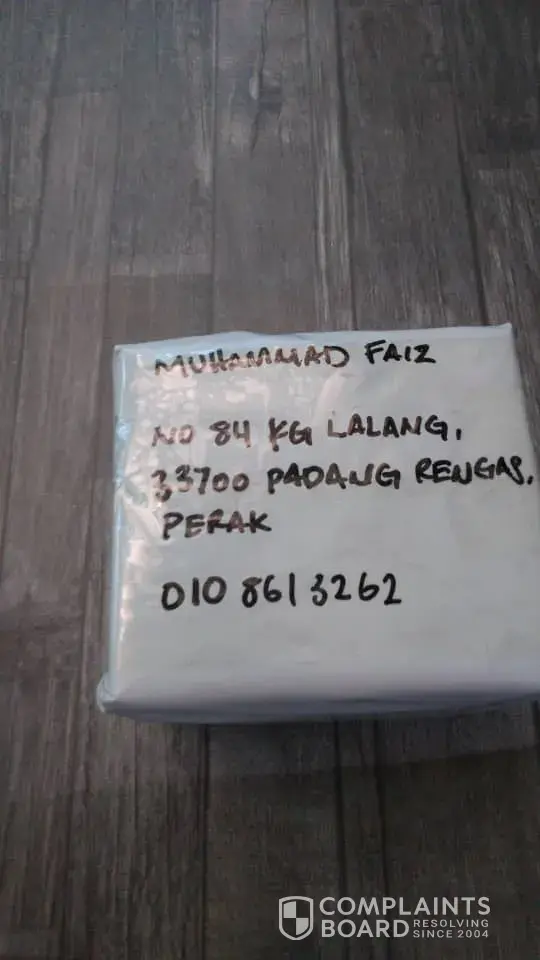 MUHAMMAD FAIZ
NO 84 KG LALANG,
33700 PADANG RENGAS,
PERAK
010 8613262
COMPLAINTS
BOARD RESOLVING
SINCE 2004